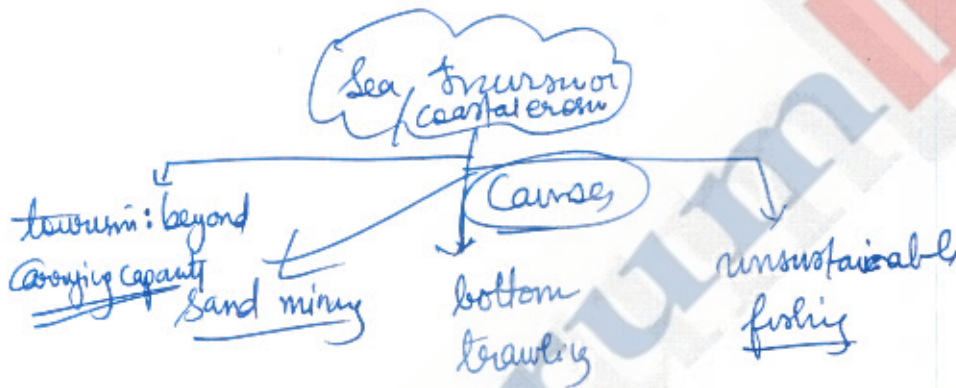 Sea Incursion
/ coastal erosion
Causes
tourism: beyond
carrying capacity
sand mining
bottom
trawling
unsustainable
fishing
rum